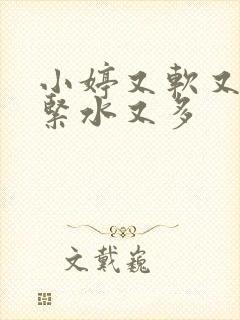 小婷又軟又
緊水又多
文戴巍